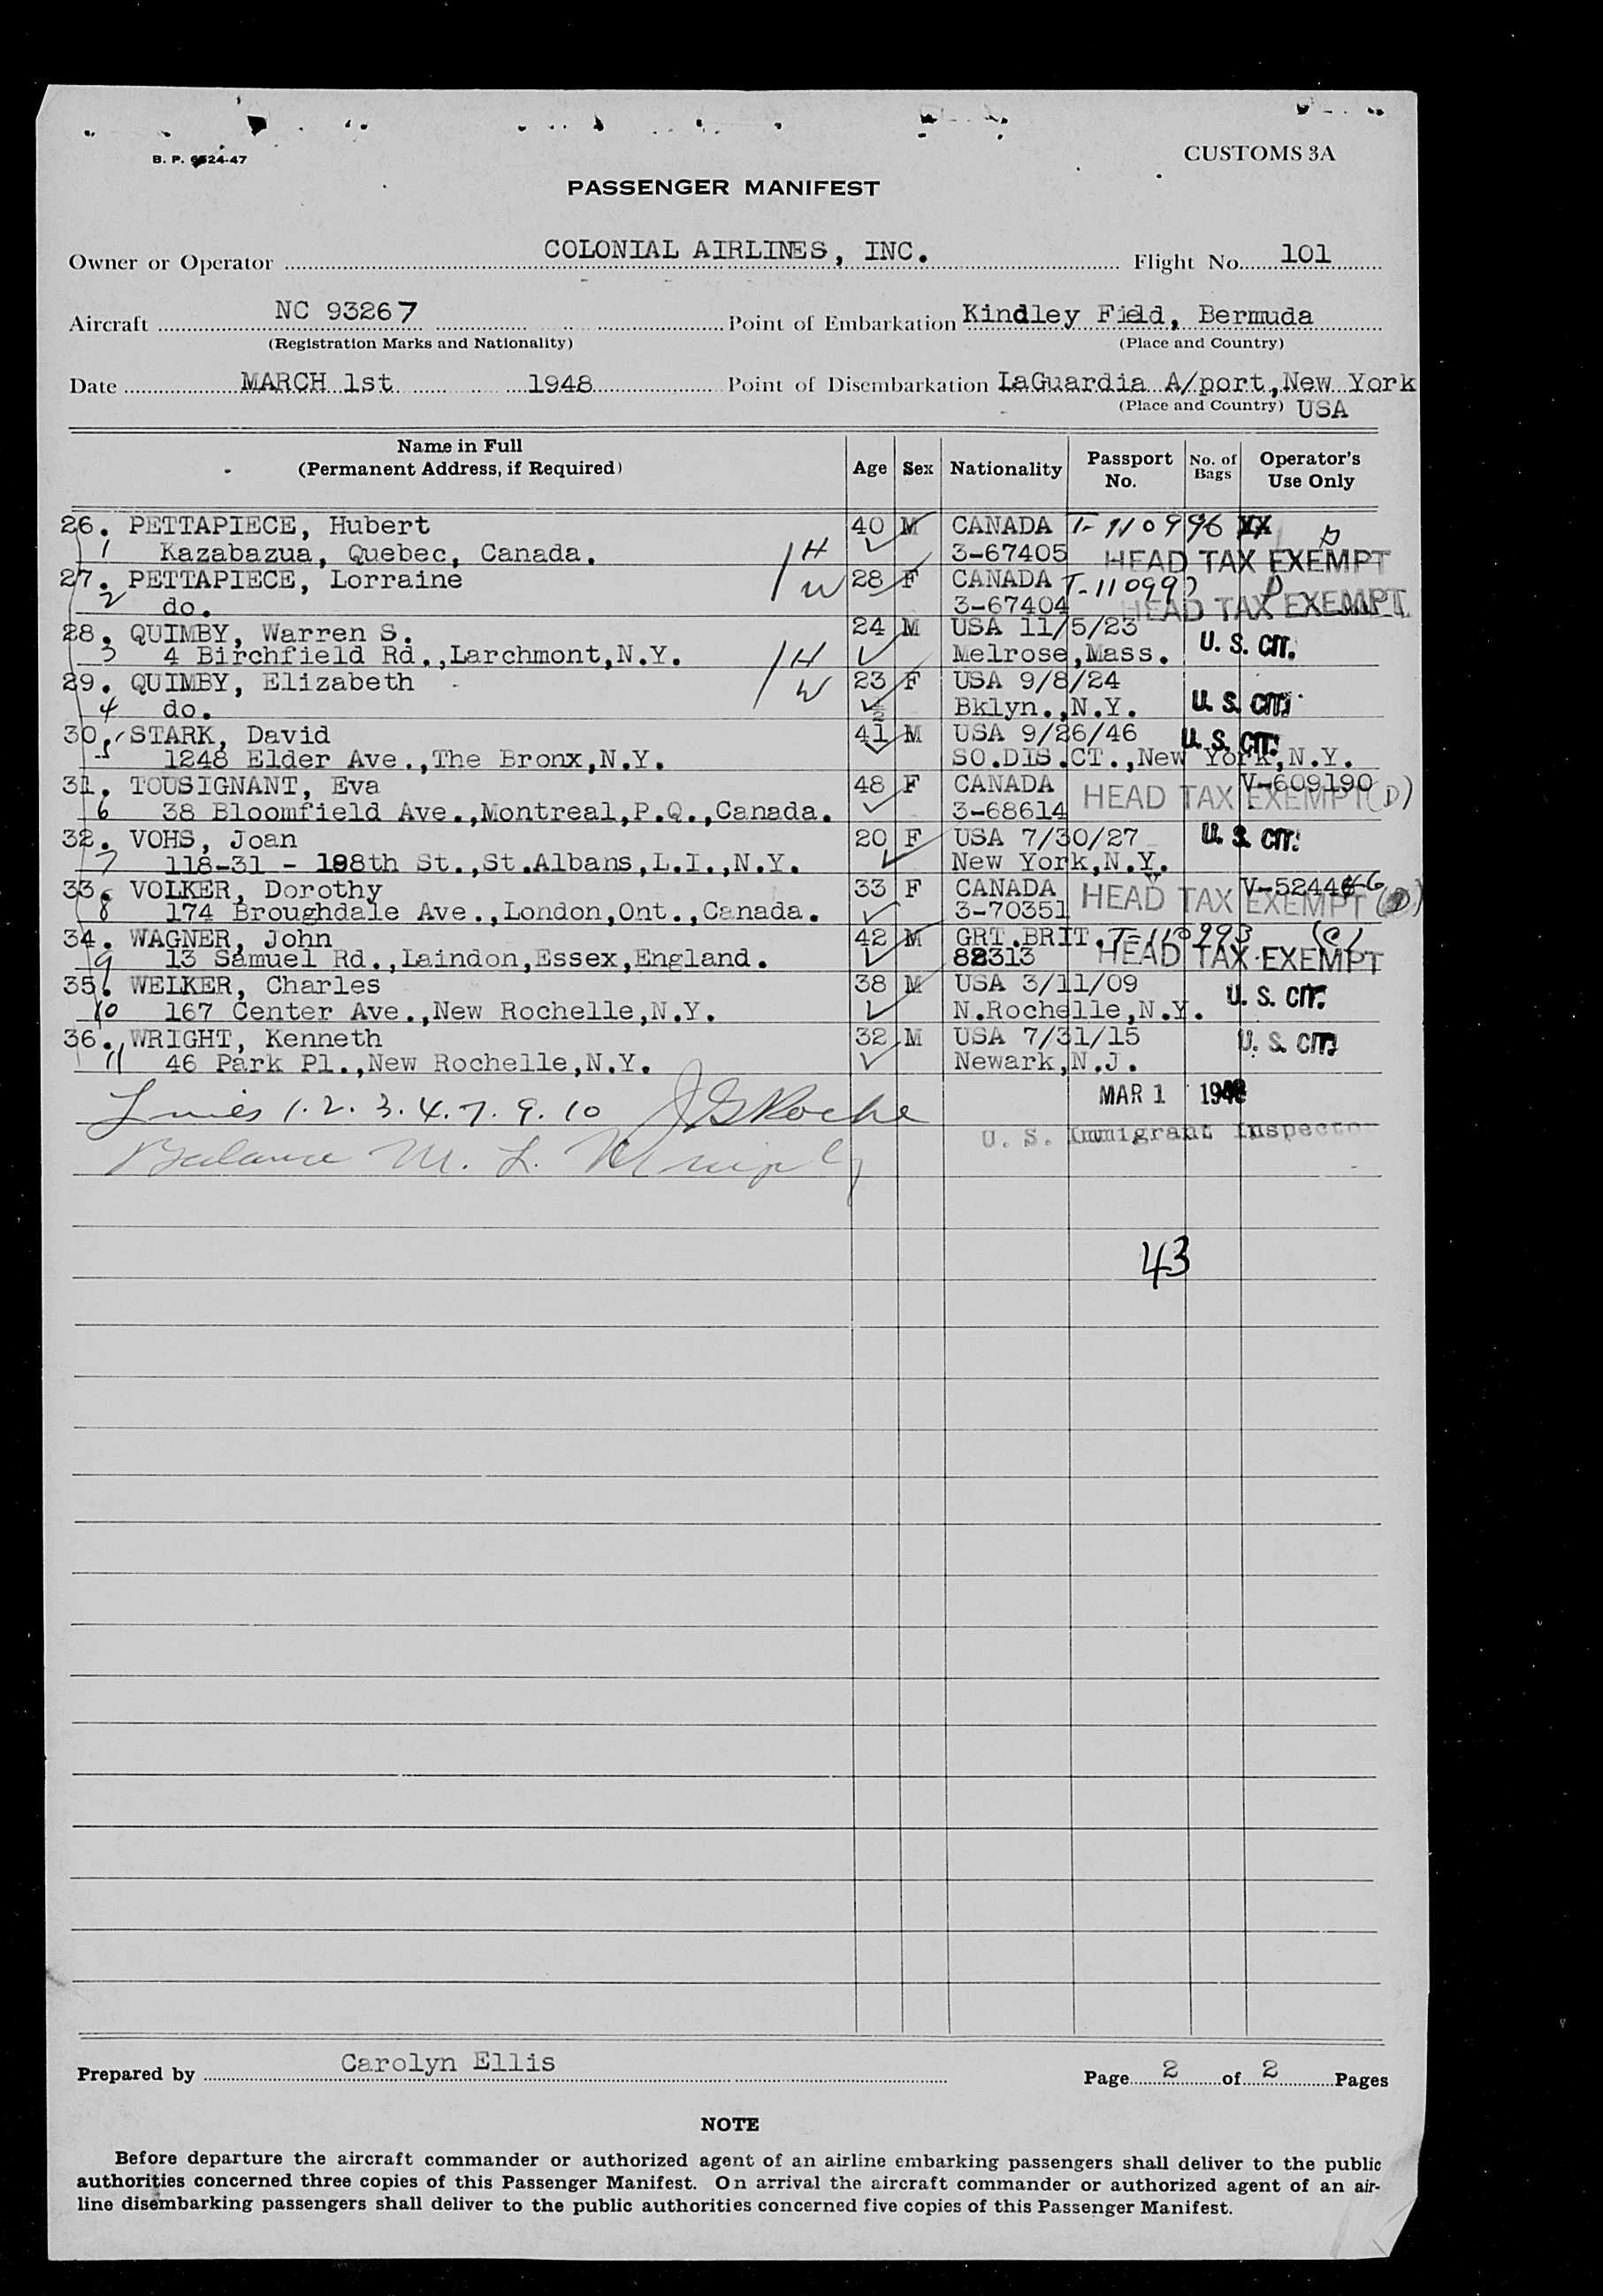 B. P. 6524-47
CUSTOMS 3A
PASSENGER MANIFEST
Owner or Operator COLONIAL AIRLINES, INC. Flight No. 101
Aircraft NC 93267 Point of Embarkation Kindley Field, Bermuda
(Registration Marks and Nationality) (Place and Country)
Date MARCH 1st 1948 Point of Disembarkation LaGuardia A/port,New York
(Place and Country) USA
Name in Full
(Permanent Address, if Required)
Age Sex Nationality Passport No. No. of Bags Operator's Use Only
26. PETTAPIECE, Hubert 40 M CANADA T-110996 XX D
1 Kazabazua, Quebec, Canada. H 3-67405 HEAD TAX EXEMPT
27. PETTAPIECE, Lorraine W 28 F CANADA T-110997 D
2 do. 3-67404 HEAD TAX EXEMPT
28. QUIMBY, Warren S. 24 M USA 11/5/23
3 4 Birchfield Rd.,Larchmont,N.Y. H Melrose,Mass. U. S. CIT.
29. QUIMBY, Elizabeth W 23 F USA 9/8/24
4 do. Bklyn.,N.Y. U. S. CIT.
30. STARK, David 41 M USA 9/26/46 U. S. CIT.
5 1248 Elder Ave.,The Bronx,N.Y. SO.DIS.CT.,New York,N.Y.
31. TOUSIGNANT, Eva 48 F CANADA V-609190
6 38 Bloomfield Ave.,Montreal,P.Q.,Canada. 3-68614 HEAD TAX EXEMPT (D)
32. VOHS, Joan 20 F USA 7/30/27 U. S. CIT.
7 118-31 - 198th St.,St.Albans,L.I.,N.Y. New York,N.Y.
33. VOLKER, Dorothy 33 F CANADA V-52446
8 174 Broughdale Ave.,London,Ont.,Canada. 3-70351 HEAD TAX EXEMPT (D)
34. WAGNER, John 42 M GRT.BRIT. T-110993 (C)
9 13 Samuel Rd.,Laindon,Essex,England. 88313 HEAD TAX EXEMPT
35. WELKER, Charles 38 M USA 3/11/09
10 167 Center Ave.,New Rochelle,N.Y. N.Rochelle,N.Y. U. S. CIT.
36. WRIGHT, Kenneth 32 M USA 7/31/15 U. S. CIT.
11 46 Park Pl.,New Rochelle,N.Y. Newark,N.J.
Lines 1. 2. 3. 4. 7. 9. 10 JGRoche MAR 1 1948
U. S. Immigrant Inspector
Balance M. L.
43
Prepared by Carolyn Ellis Page 2 of 2 Pages
NOTE
Before departure the aircraft commander or authorized agent of an airline embarking passengers shall deliver to the public
authorities concerned three copies of this Passenger Manifest. On arrival the aircraft commander or authorized agent of an air-
line disembarking passengers shall deliver to the public authorities concerned five copies of this Passenger Manifest.